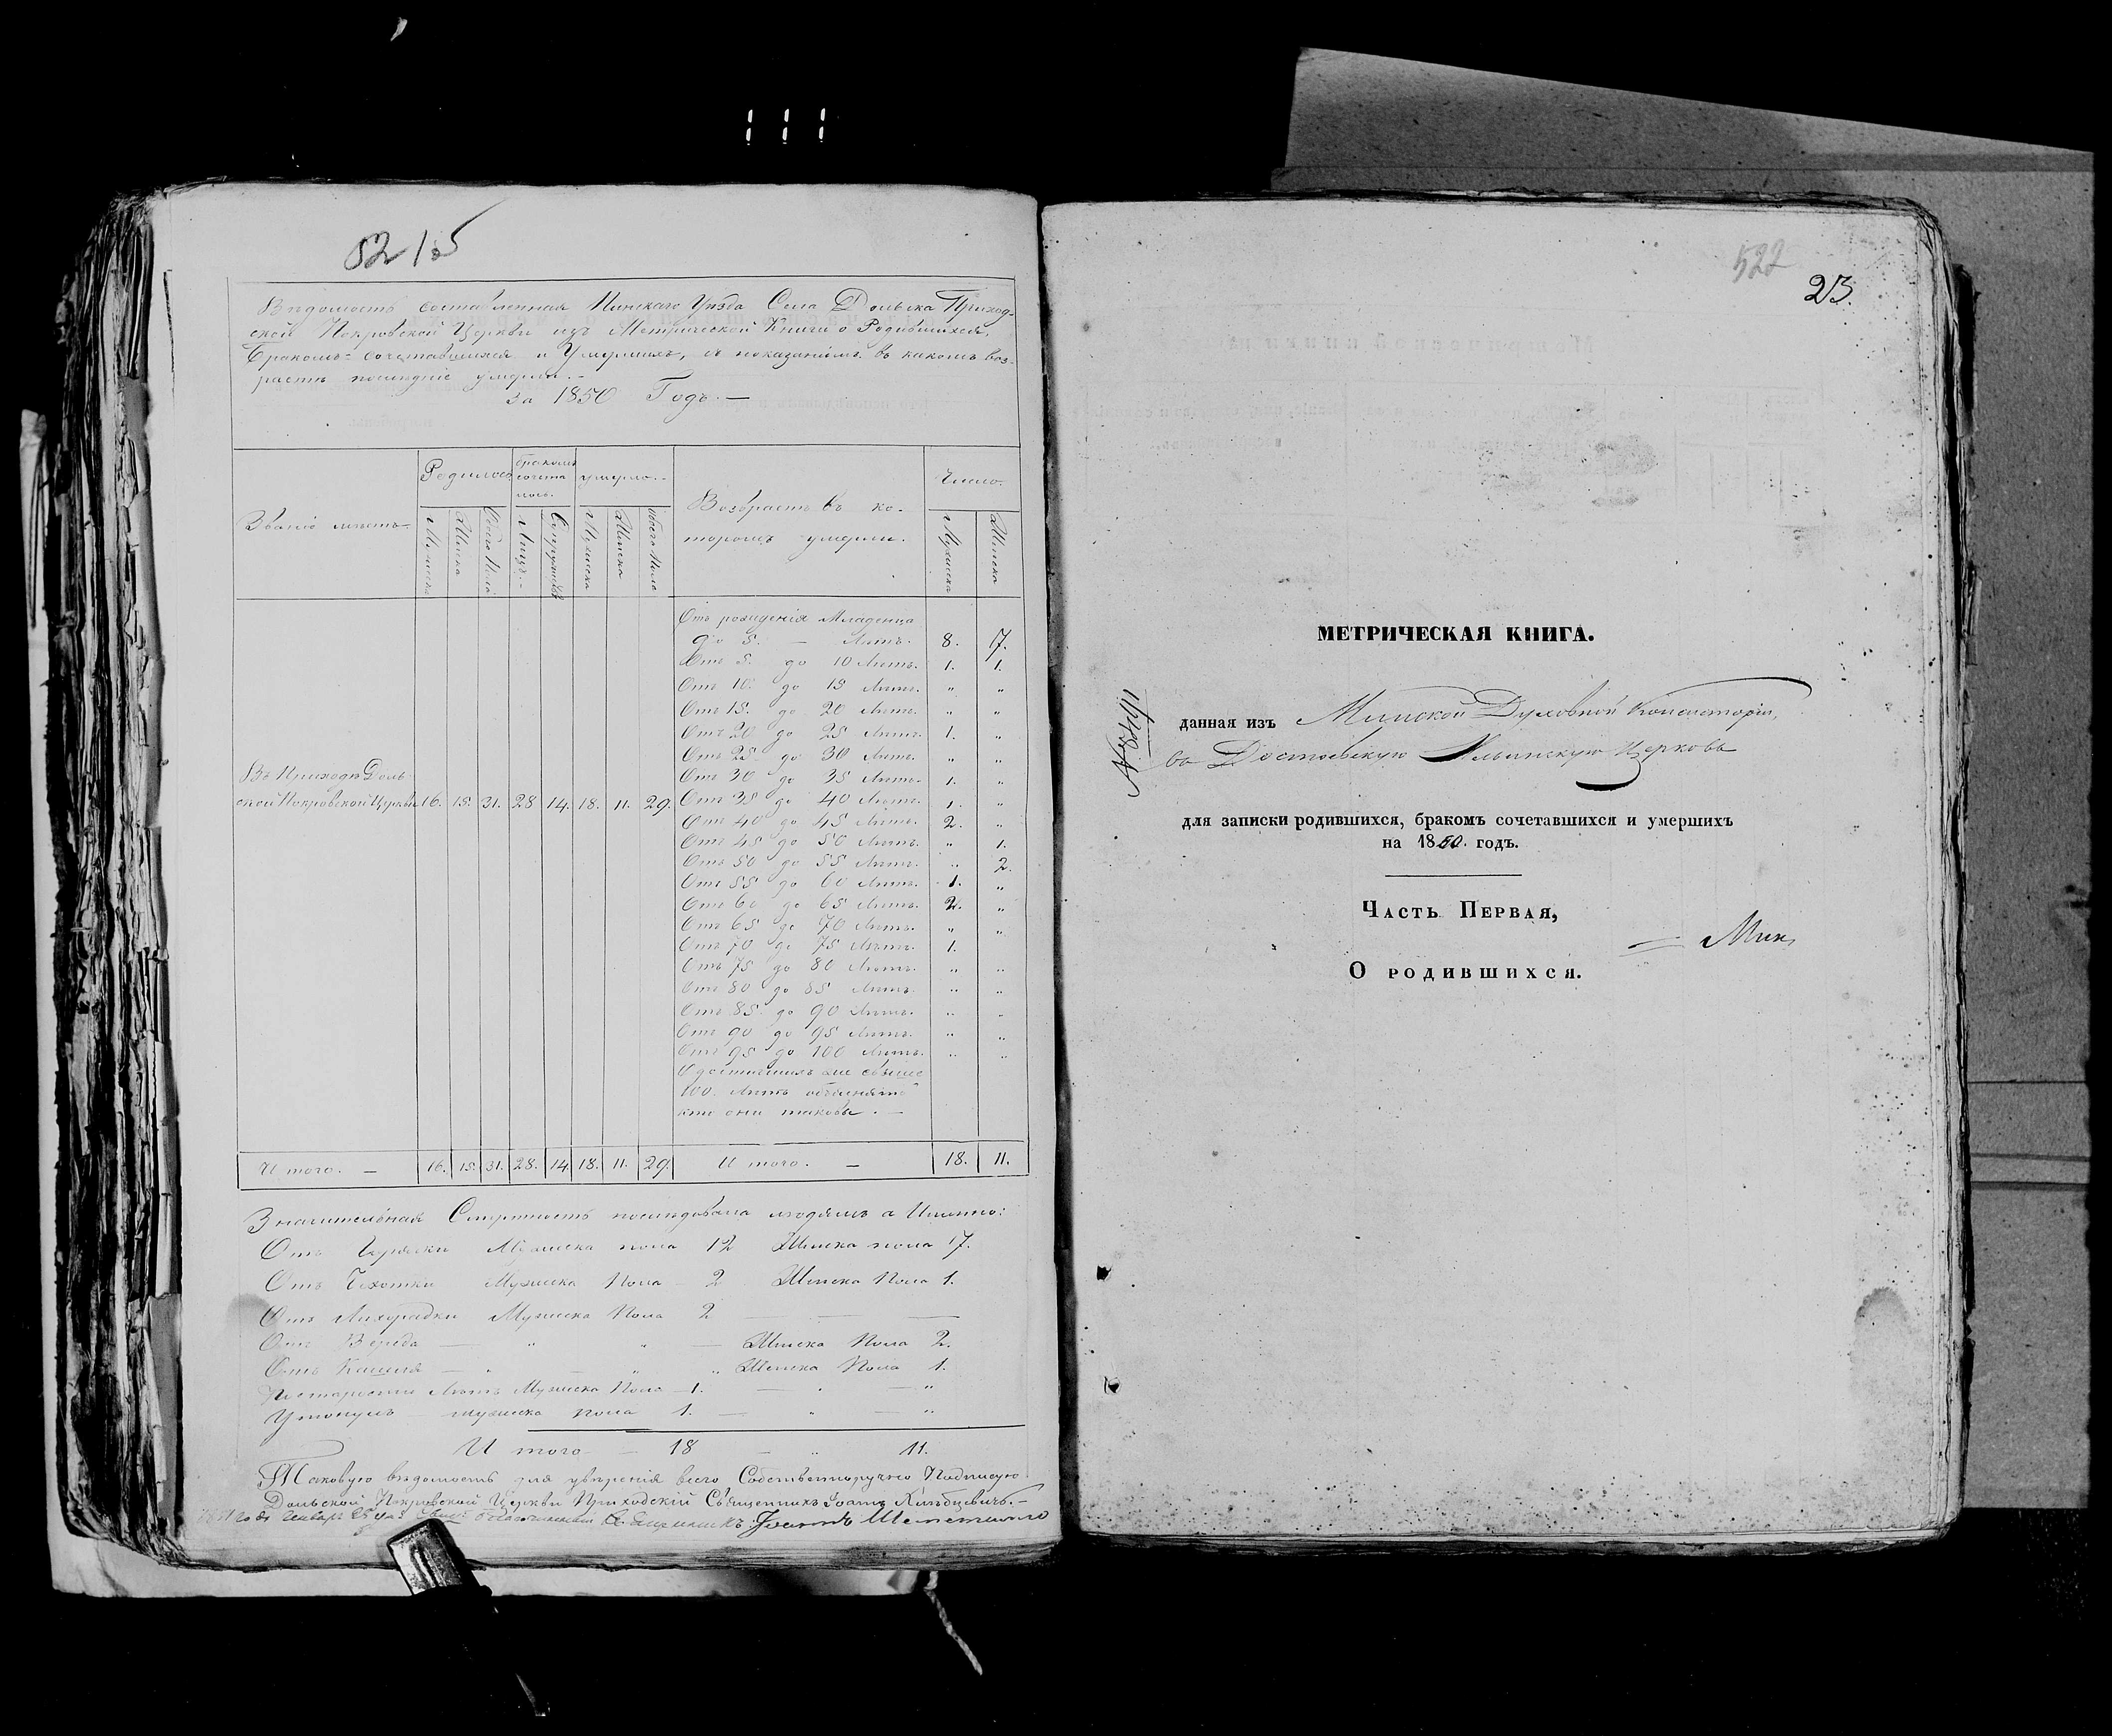 521 об
Вѣдомость составленная Пинскаго Уѣзда Села Дольска Приход-
ской Покровской Церкви изъ Метрической Книги о Родившихся,
Бракомъ-сочетавшихся и Умершихъ, съ показаніемъ въ какомъ воз-
растѣ послѣдніе умерли.-
За 1850 Годъ.-
Званіе мѣстъ Родилось бракомъ сочеталось. умерло.- Возврастъ въ ко- Число.
торомъ умерли.
Мужеска Женска Обоего Пола Лицъ.- Супружествъ Мужеска Женска Обоего Пола Мужеска Женска
Отъ рожденія Младенца
до 5. — Лѣтъ. 8. 7.
Отъ 5. до 10 Лѣтъ. 1. 1.
Отъ 10. до 15 Лѣтъ. " "
Отъ 15. до 20 Лѣтъ. " "
Отъ 20 до 25 Лѣтъ. 1. "
Отъ 25. до 30 Лѣтъ. " "
Отъ 30 до 35 Лѣтъ. 1. "
Въ Приходѣ Доль-
ской Покровской Церкви 16. 15. 31. 28 14. 18. 11. 29.
Отъ 35 до 40 Лѣтъ. 1. "
Отъ 40 до 45 Лѣтъ. 2. "
Отъ 45 до 50 Лѣтъ. " 1.
Отъ 50 до 55 Лѣтъ. " 2.
Отъ 55 до 60 Лѣтъ. 1. "
Отъ 60 до 65 Лѣтъ. 2. "
Отъ 65 до 70 Лѣтъ. " "
Отъ 70 до 75 Лѣтъ. 1.
Отъ 75 до 80 Лѣтъ. " "
Отъ 80 до 85 Лѣтъ. " "
Отъ 85. до 90 Лѣтъ. " "
Отъ 90 до 95 Лѣтъ. " "
Отъ 95 до 100 Лѣтъ. " "
О достигшихъ же свыше
100. Лѣтъ объяснять
кто они таковы.-
Итого. — 16. 15. 31. 28. 14. 18. 11. 29. Итого. — 18. 11.
Значительная Смертность послѣдовала людямъ а Именно:
Отъ Мужеска пола 12 Женска пола 7.
Отъ Чахотки Мужеска Пола 2 Женска Пола 1.
Отъ Лихорадки Мужеска Пола 2
Отъ Вереда — " " — Женска Пола 2.
Отъ Кашеля — " — " " Женска Пола 1.
По старости Лѣтъ Мужеска Пола — 1. — " — "
Утонулъ — мужеска пола 1. — " — "
Итого — 18 — " 11.
Таковую вѣдомость для увѣренія всего Собственноручно Подписую
Дольской Покровской Церкви Приходскій Священникъ Іоаннъ
1851 года Генваря Благочинный Священникъ Іоаннъ
522
23.
МЕТРИЧЕСКАЯ КНИГА.
данная изъ Минской Духовной Консисторіи,
въ Достоевскую Ильинскую Церковь
для записки родившихся, бракомъ сочетавшихся и умершихъ
на 1850. годъ.
Часть Первая,
Мин,
О РОДИВШИХСЯ.